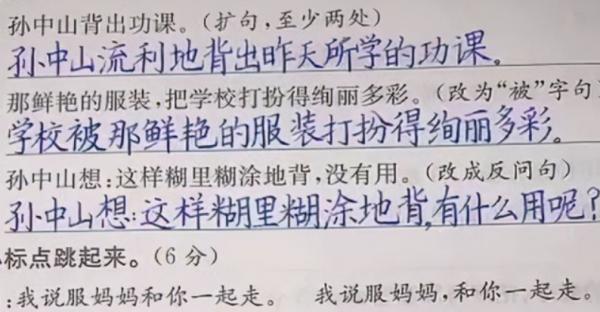 孙中山背出功课。(扩句,至少两处)
孙中山流利地背出昨天所学的功课。
那鲜艳的服装,把学校打扮得绚丽多彩。(改为“被”字句
学校被那鲜艳的服装打扮得绚丽多彩。
孙中山想:这样糊里糊涂地背,没有用。(改成反问句)
孙中山想:这样糊里糊涂地背,有什么用呢?
标点跳起来。(6分)
:我说服妈妈和你一起走。 我说服妈妈,和你一起走。